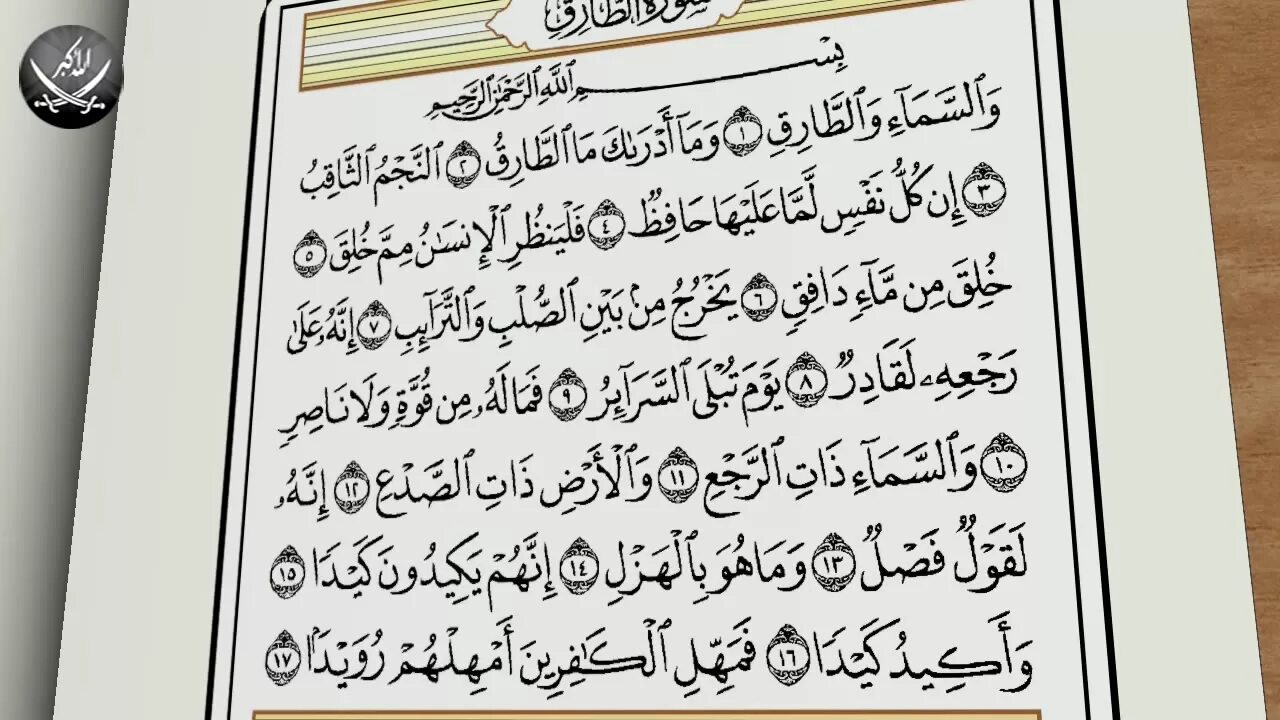 الله أكبر
سورة الطارق
بِسْمِ ٱللَّهِ ٱلرَّحْمَٰنِ ٱلرَّحِيمِ
وَٱلسَّمَآءِ وَٱلطَّارِقِ ١ وَمَآ أَدْرَىٰكَ مَا ٱلطَّارِقُ ٢ ٱلنَّجْمُ ٱلثَّاقِبُ
٣ إِن كُلُّ نَفْسٍ لَّمَّا عَلَيْهَا حَافِظٌ ٤ فَلْيَنظُرِ ٱلْإِنسَٰنُ مِمَّ خُلِقَ ٥
خُلِقَ مِن مَّآءٍ دَافِقٍ ٦ يَخْرُجُ مِنۢ بَيْنِ ٱلصُّلْبِ وَٱلتَّرَآئِبِ ٧ إِنَّهُۥ عَلَىٰ
رَجْعِهِۦ لَقَادِرٌ ٨ يَوْمَ تُبْلَى ٱلسَّرَآئِرُ ٩ فَمَا لَهُۥ مِن قُوَّةٍ وَلَا نَاصِرٍ
١٠ وَٱلسَّمَآءِ ذَاتِ ٱلرَّجْعِ ١١ وَٱلْأَرْضِ ذَاتِ ٱلصَّدْعِ ١٢ إِنَّهُۥ
لَقَوْلٌ فَصْلٌ ١٣ وَمَا هُوَ بِٱلْهَزْلِ ١٤ إِنَّهُمْ يَكِيدُونَ كَيْدًا ١٥
وَأَكِيدُ كَيْدًا ١٦ فَمَهِّلِ ٱلْكَٰفِرِينَ أَمْهِلْهُمْ رُوَيْدًۢا ١٧